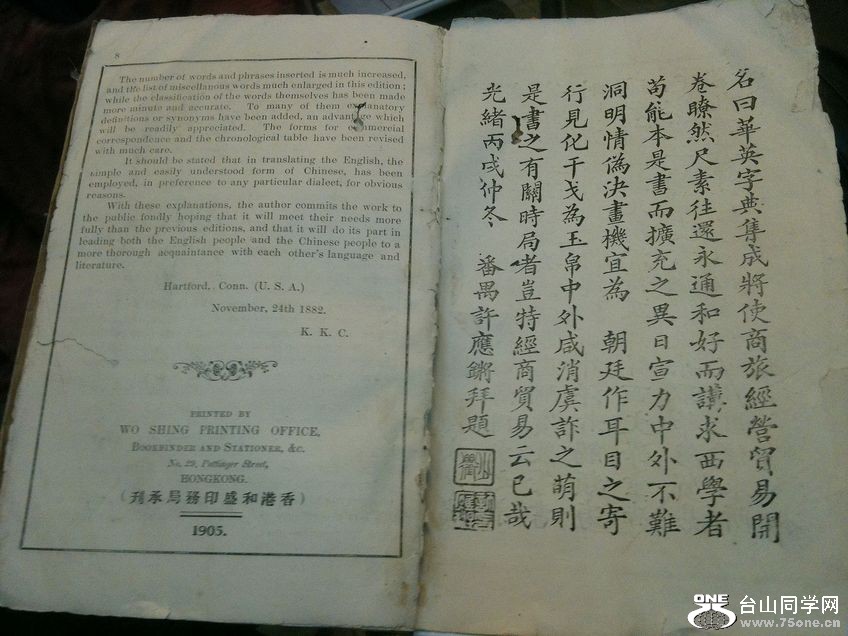 8
The number of words and phrases inserted is much increased,
and the list of miscellanous words much enlarged in this edition;
while the classification of the words themselves has been made
more minute and accurate. To many of them explanatory
definitions or synonyms have been added, an advantage which
will be readily appreciated. The forms for commercial
correspondence and the chronological table have been revised
with much care.
It should be stated that in translating the English, the
simple and easily understood form of Chinese, has been
employed, in preference to any particular dialect, for obvious
reasons.
With these explanations, the author commits the work to
the public fondly hoping that it will meet their needs more
fully than the previous editions, and that it will do its part in
leading both the English people and the Chinese people to a
more thorough acquaintance with each other's language and
literature.
Hartford, Conn. (U. S. A.)
November, 24th 1882.
K. K. C.
PRINTED BY
WO SHING PRINTING OFFICE,
BOOKBINDER AND STATIONER, &C.
No. 29, Pottinger Street,
HONGKONG.
(刊承局務印盛和港香)
1905.
名曰華英字典集成將使商旅經營貿易開
卷瞭然尺素往還永通和好而講求西學者
苟能本是書而擴充之異日宣力中外不難
洞明情僞決畫機宜為 朝廷作耳目之寄
行見化干戈為玉帛中外咸消虞詐之萌則
是書之有關時局者豈特經商貿易云已哉
光緒丙戌仲冬 番禺許應鏘拜題
ONE 台山同学网
www.75one.cn